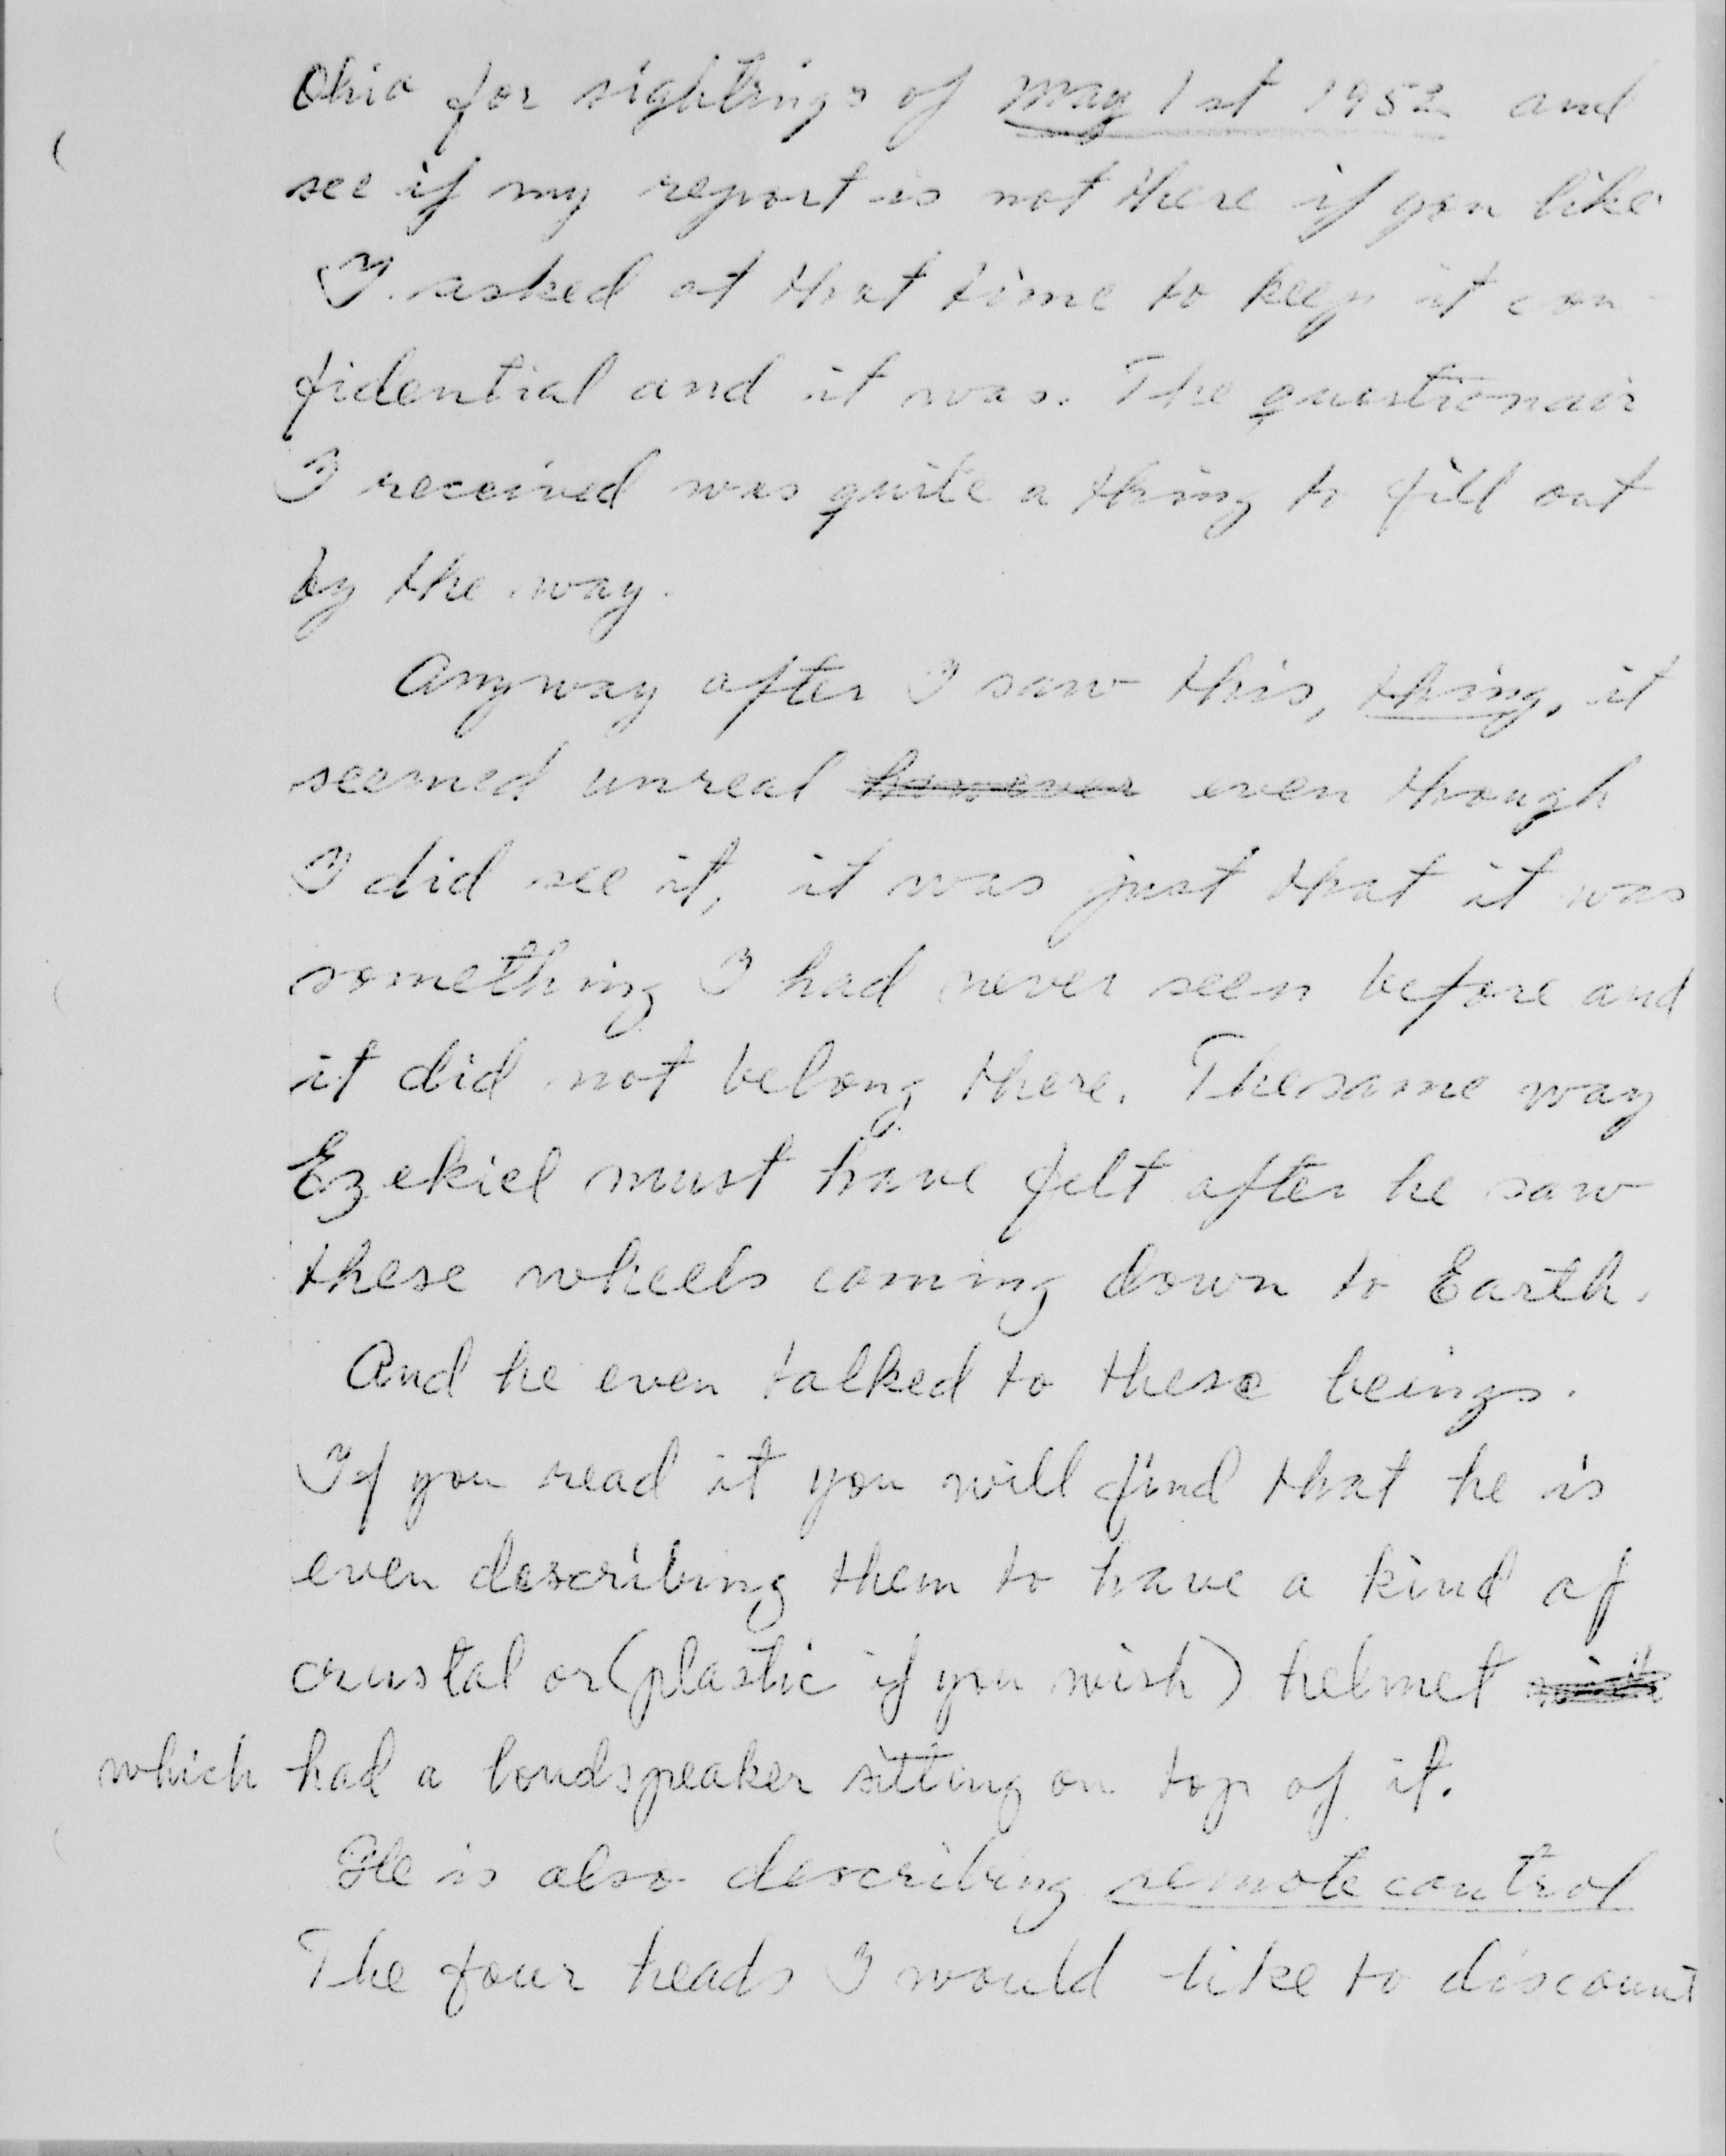 Ohio for sightings of May 1st 1952 and
see if my report is not there if you like
I asked at that time to keep it con-
fidential and it was. The questionair
I received was quite a thing to fill out
by the way.
Anyway after I saw this, thing, it
seemed unreal however even though
I did see it, it was just that it was
something I had never seen before and
it did not belong there. The same way
Ezekiel must have felt after he saw
these wheels coming down to Earth.
And he even talked to these beings.
If you read it you will find that he is
even describing them to have a kind of
crustal or (plastic if you wish) helmet with
which had a loudspeaker sitting on top of it.
He is also describing remote control
The four heads I would like to discount